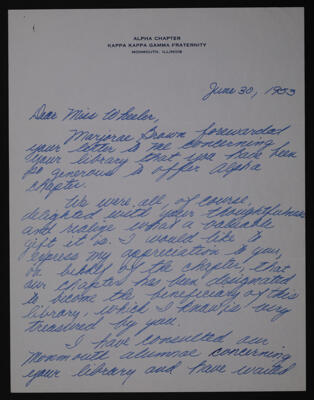 ALPHA CHAPTER
KAPPA KAPPA GAMMA FRATERNITY
MONMOUTH, ILLINOIS
June 30, 1953
Dear Miss Wheeler,
Marjorae Brown forwarded
your letter to me concerning
your library that you have been
so generous to offer Alpha
Chapter.
We were all, of course,
delighted with your thoughtfulness
and realize what a valuable
gift it is. I would like to
express my appreciation to you,
on behalf of the chapter, that
our chapter has been designated
to become the beneficiary of this
library, which I know is very
treasured by you.
I have consulted our
Monmouth alumnae concerning
your library and have waited